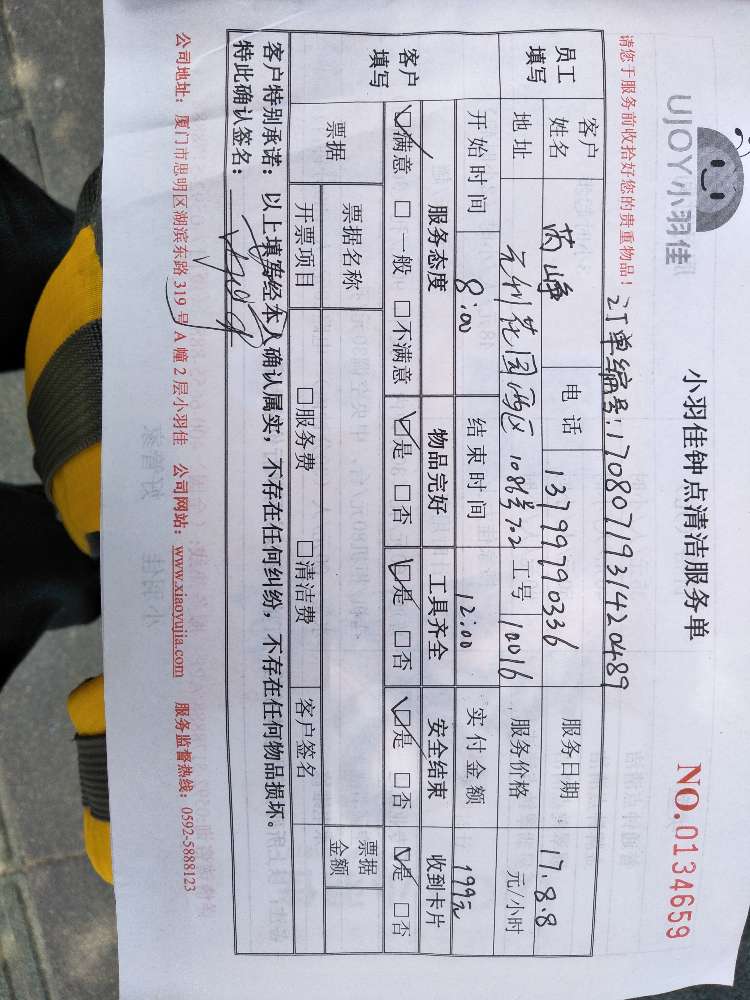 UJOY小羽佳
小羽佳钟点清洁服务单
NO.0134659
请您于服务前收拾好您的贵重物品！
订单编号:1708071931420489
员工填写
客户姓名 电话 13799790336 服务日期 17.8.8
地址 元利花园西区108号702 工号 10016 服务价格 元/小时
开始时间 8:00 结束时间 12:00 实付金额 199元
客户填写
服务态度 物品完好 工具齐全 安全结束 收到卡片
☑满意 □一般 □不满意 ☑是 □否 ☑是 □否 ☑是 □否 ☑是 □否
票据
票据名称 票据金额
开票项目 □服务费 □清洁费 客户签名
客户特别承诺：以上填写经本人确认属实，不存在任何纠纷，不存在任何物品损坏。
特此确认签名：
公司地址：厦门市思明区湖滨东路 319 号 A 幢 2 层小羽佳 公司网站：www.xiaoyujia.com 服务监督热线：0592-5888123